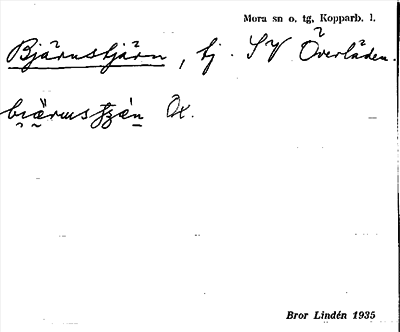 Mora sn o. tg, Kopparb. l.
Bjärnstjärn, tj. SV Överläden.
Öx.
Bror Lindén 1935